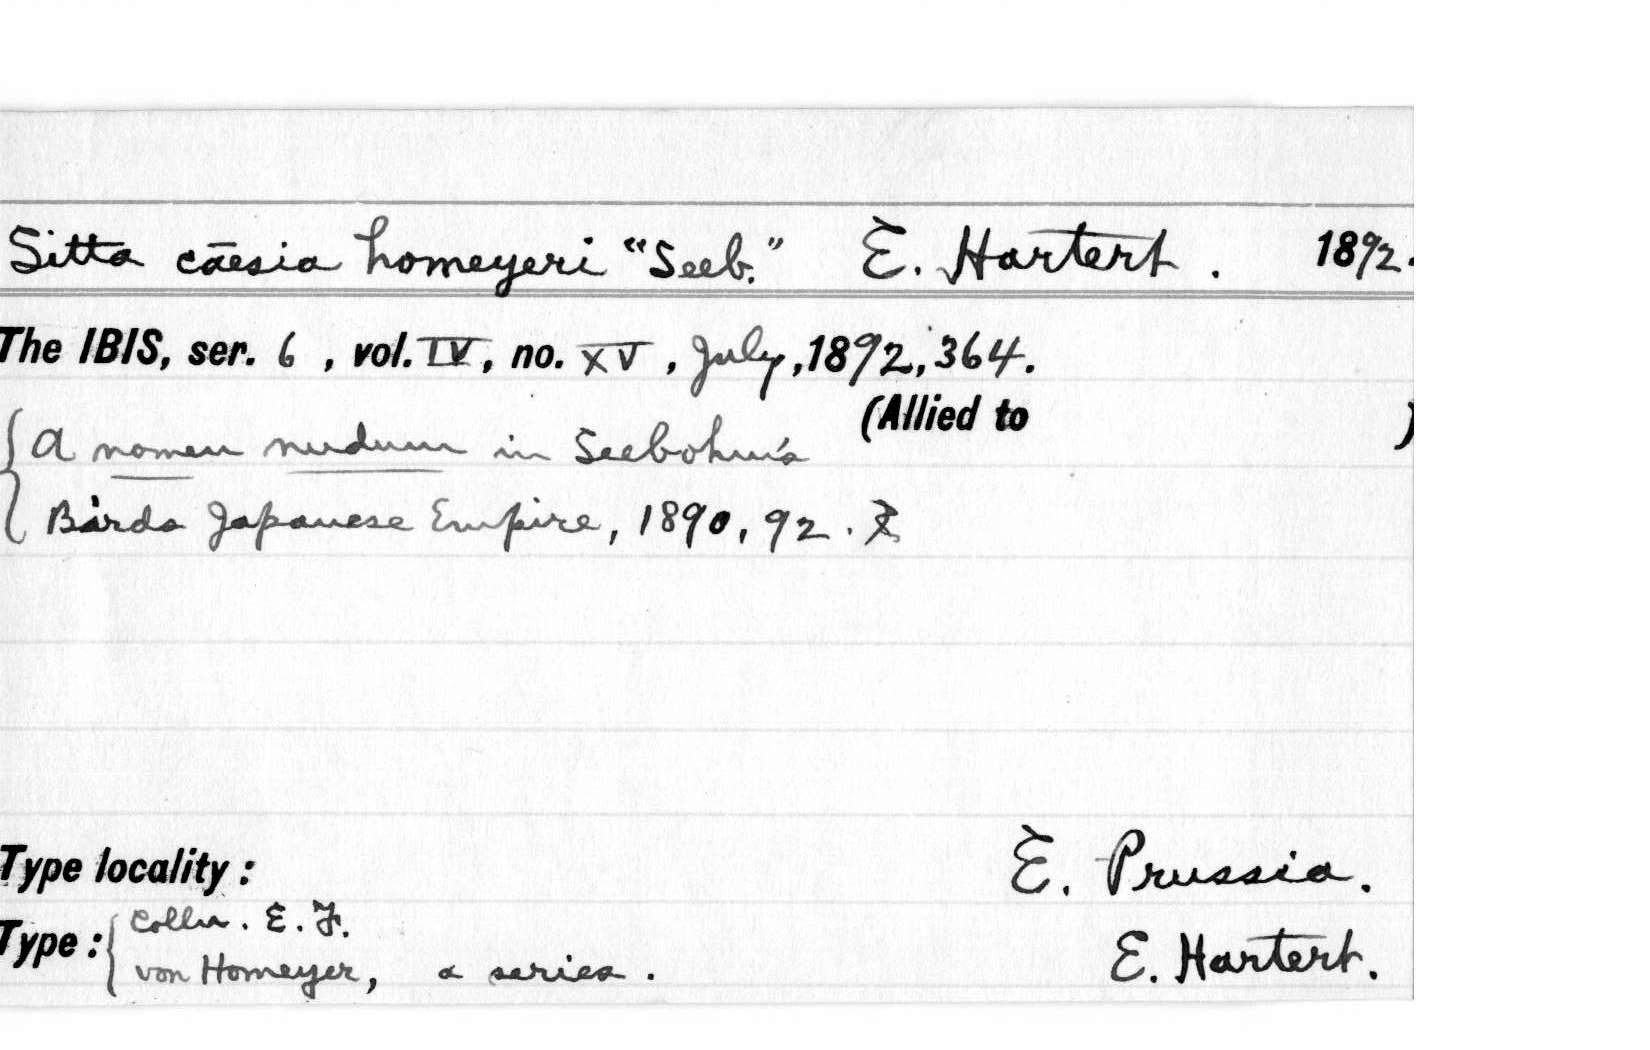 Sitta caesia homeyeri "Seeb." E. Hartert. 1892.
The IBIS, ser. 6, vol. IV, no. XV, July, 1892, 364.
(Allied to )
{A nomen nudum in Seebohm's
Birds Japanese Empire, 1890, 92.
Type locality: E. Prussia.
Type: { Colln. E. F.
von Homeyer, a series. E. Hartert.